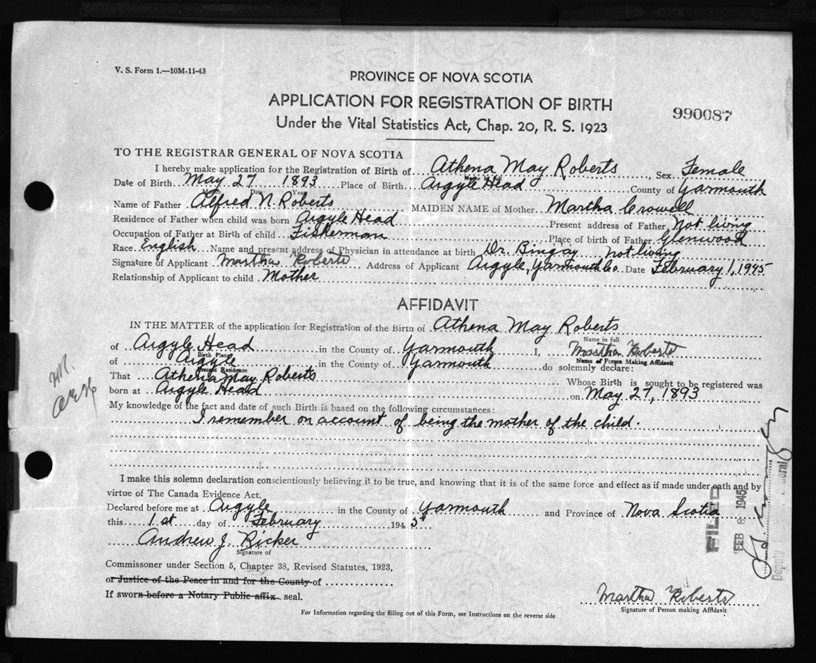 V. S. Form 1.—10M-11-43
PROVINCE OF NOVA SCOTIA
APPLICATION FOR REGISTRATION OF BIRTH
990087
Under the Vital Statistics Act, Chap. 20, R. S. 1923
TO THE REGISTRAR GENERAL OF NOVA SCOTIA
I hereby make application for the Registration of Birth of Athena May Roberts Sex Female
Date of Birth May 27 1893 Place of Birth Argyle Head County of Yarmouth
Name of Father Alfred N. Roberts MAIDEN NAME of Mother Martha Crowell
Residence of Father when child was born Argyle Head Present address of Father Not living
Occupation of Father at Birth of child Fisherman Place of birth of Father Glenwood
Race English Name and present address of Physician in attendance at birth Dr. Bingay not living
Signature of Applicant Martha Roberts Address of Applicant Argyle, Yarmouth Co. Date February 1, 1945
Relationship of Applicant to child Mother
AFFIDAVIT
IN THE MATTER of the application for Registration of the Birth of Athena May Roberts
Name in full
of Argyle Head in the County of Yarmouth I, Martha Roberts
Birth Place Name of Person Making Affidavit
of Argyle in the County of Yarmouth do solemnly declare:
Present Residence
That Athena May Roberts Whose Birth is sought to be registered was
born at Argyle Head on May 27, 1893
My knowledge of the fact and date of such Birth is based on the following circumstances:
I remember on account of being the mother of the child.
I make this solemn declaration conscientiously believing it to be true, and knowing that it is of the same force and effect as if made under oath and by
virtue of The Canada Evidence Act.
Declared before me at Argyle in the County of Yarmouth and Province of Nova Scotia
this 1st day of February 1945
Andrew J. Ricker
Signature of
Commissioner under Section 5, Chapter 38, Revised Statutes, 1923,
or Justice of the Peace in and for the County of
If sworn before a Notary Public affix seal.
Martha Roberts
Signature of Person making Affidavit
For Information regarding the filling out of this Form, see Instructions on the reverse side
FILED
FEB 8 1945
Deputy